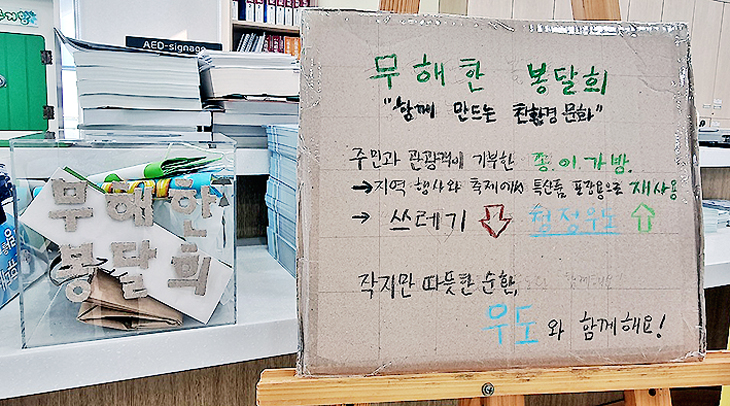 AED-signage
무해한
봉달회
무해한 봉달회
"함께 만드는 친환경 문화"
주민과 관광객이 기부한 종.이.가방.
→지역 행사와 축제에서 특산품 포장용으로 재사용
→ 쓰레기 ↓ 청정우도 ↑
작지만 따뜻한 순환,
우도와 함께해요!